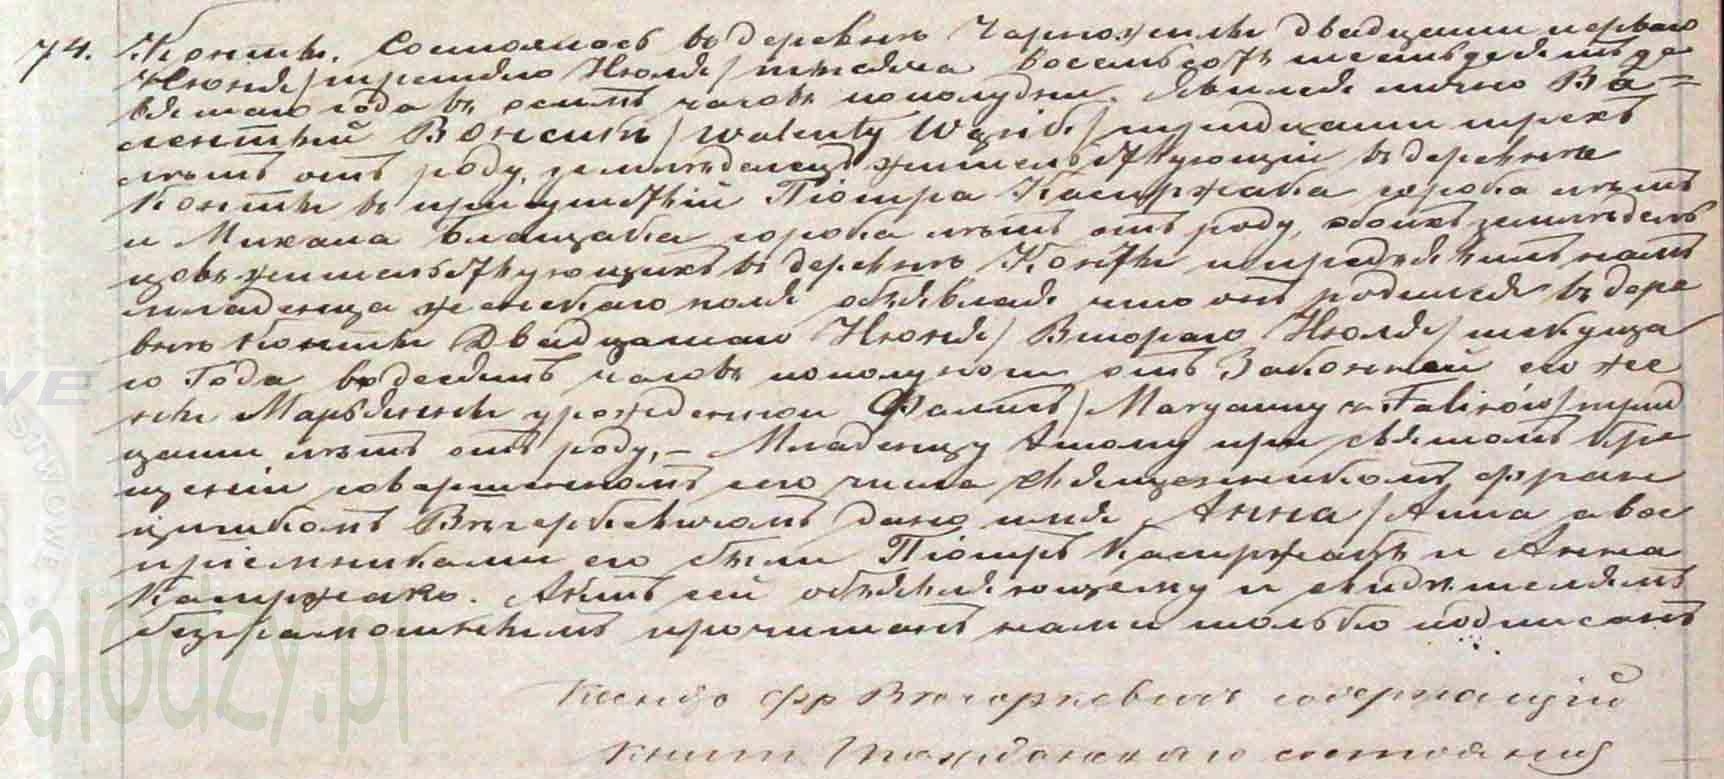 74. Контки. Состоялось въ деревнѣ Чарножилы двадцать перваго
Іюня / третьяго Іюля / тысяча восемьсотъ шестьдесятъ де=
вятаго года въ семь часовъ пополудни. Явился лично Ва=
лентый Вонсикъ / Walenty Wąsik / тридцати трехъ
лѣтъ отъ роду, земледелецъ жительствующій въ деревнѣ
Контки въ присутствій Піотра Кацржака сорока лѣтъ
и Михала Блащака сорока лѣтъ отъ роду, обоихъ земледель
цовъ жительствующихъ въ деревнѣ Контки и предъявилъ намъ
младенца женскаго пола объявляя что онъ родился въ дере
внѣ Контки Двадцатаго Іюня / Втораго Іюля / текуща
го Года въ десять часовъ пополуночи отъ Законной его же
ны Марьянны урожденной Фалисъ / Maryanny z Falisów / трид
цати лѣтъ отъ роду, – Младенцу этому при святомъ кре
щеніи совершенномъ сего числа Священникомъ Фран
цишкомъ Вѣчоркевичомъ дано имя Анна / Anna а вос
пріемниками его были Піотръ Кацржакъ и Анна
Кацржакъ. Актъ сей объявляющему и свидѣтелямъ
безграмотнымъ прочитанъ нами только подписанъ
Ксендзъ Фр Вѣчоркевичъ содержащій
книги Гражданскаго состоянія
ealodzy.pl